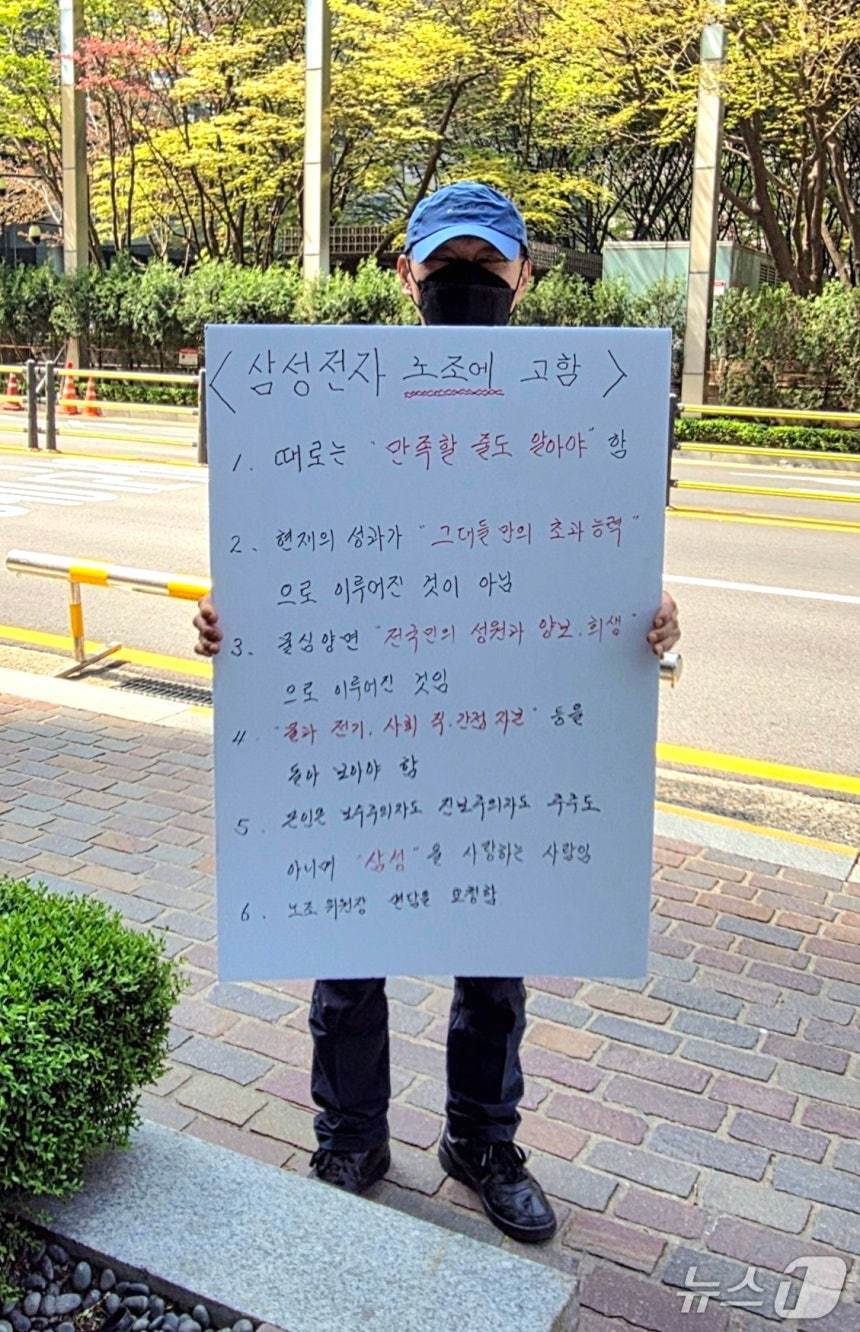 < 삼성전자 노조에 고함 >
1. 때로는 "만족할 줄도 알아야" 함
2. 현재의 성과가 "그대들만의 초과능력"
으로 이루어진 것이 아님
3. 물심양면 "전국민의 성원과 양보.희생"
으로 이루어진 것임
4. "물과 전기, 사회 직.간접 자본" 등을
돌아 보아야 함
5. 본인은 보수주의자도 진보주의자도 주주도
아니며 "삼성"을 사랑하는 사람임
6. 노조 위원장 면담을 요청함
뉴스1